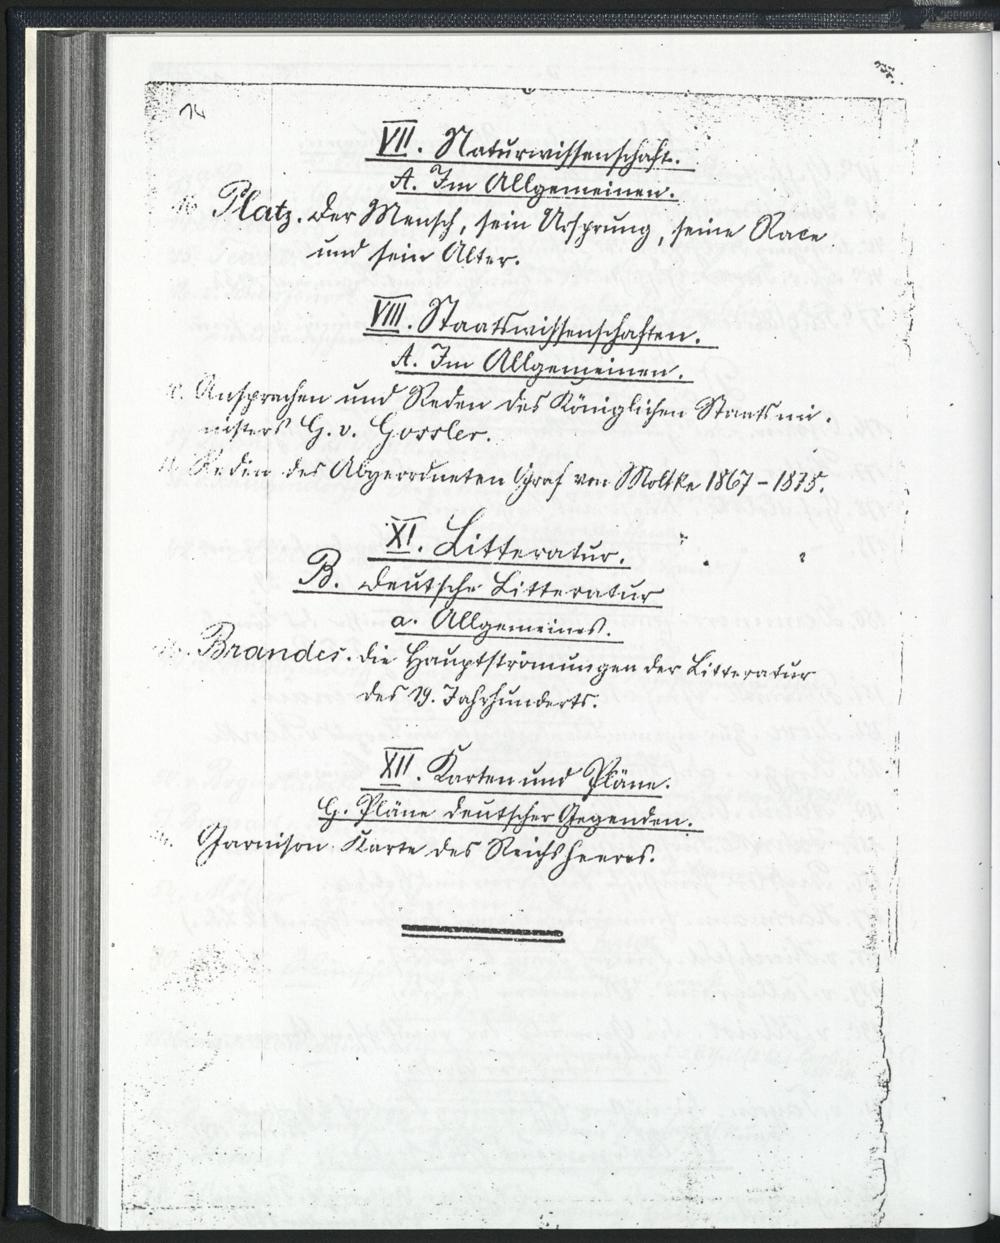 14
VII. Naturwissenschaft.
A. Im Allgemeinen.
Platz. Der Mensch, sein Ursprung, seine Race
und sein Alter.
VIII. Staatswissenschaften.
A. Im Allgemeinen.
Ansprachen und Reden des Königlichen Staatsmi-
nisters G. v. Gossler.
Reden des Abgeordneten Graf von Moltke 1867 - 1875.
XI. Litteratur.
B. Deutsche Litteratur
a. Allgemeines.
Brandes. Die Hauptströmungen der Litteratur
des 19. Jahrhunderts.
XII. Karten und Pläne.
G. Pläne deutscher Gegenden.
Garnison-Karte des Reichsheeres.